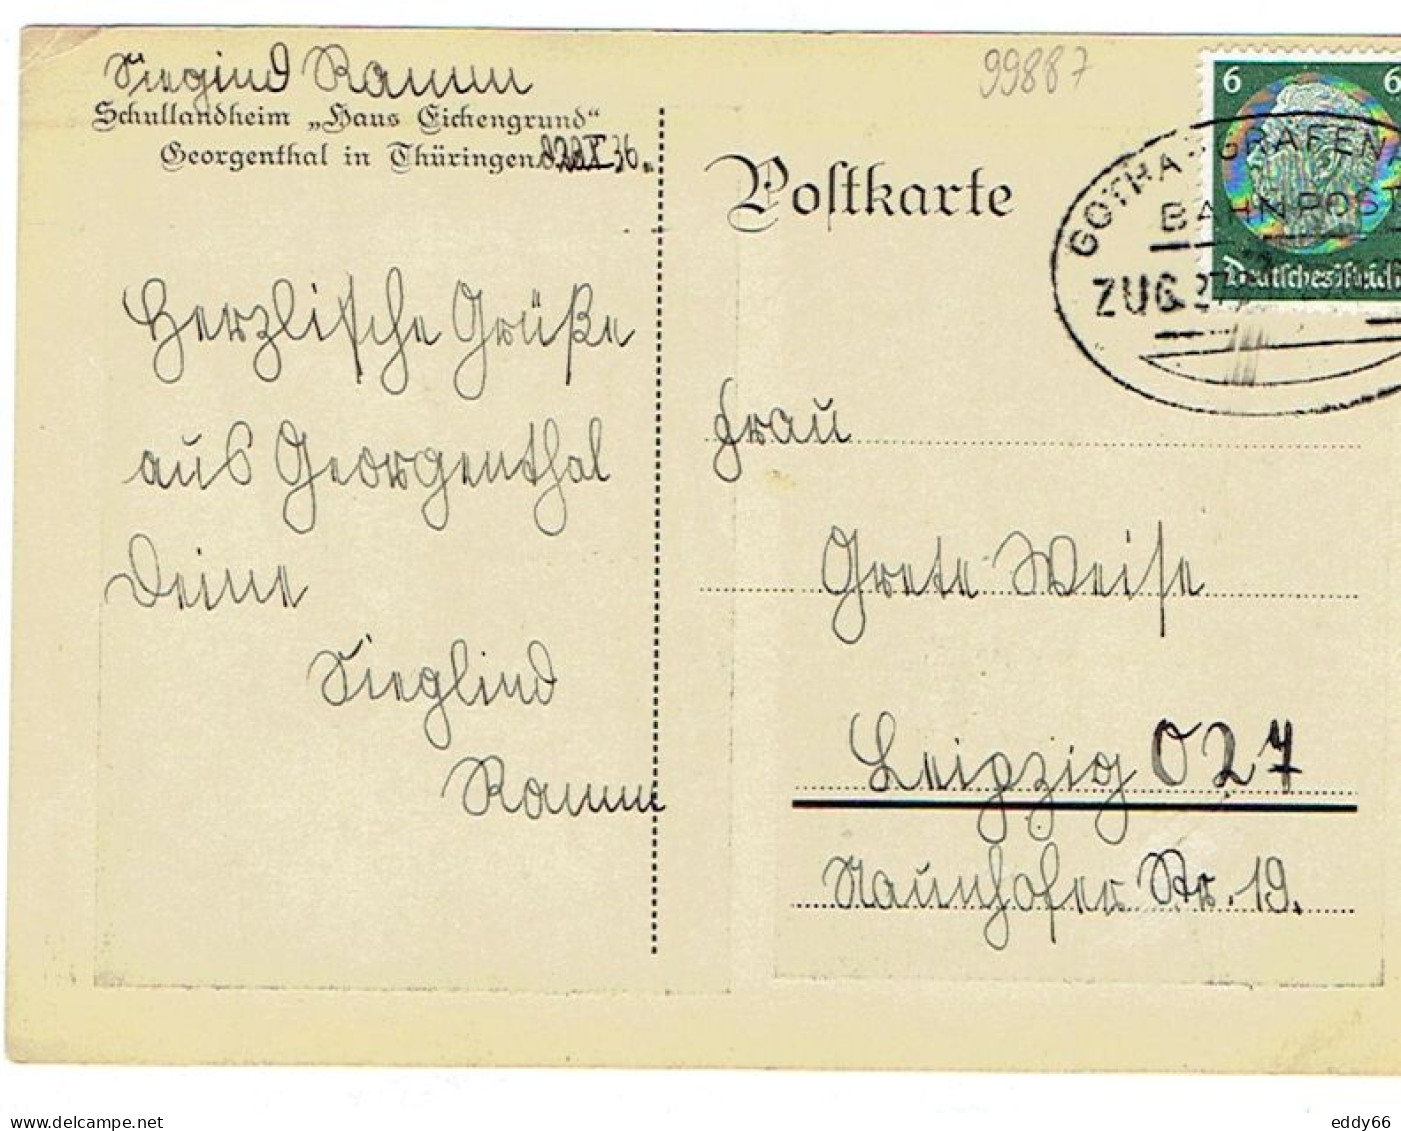 Siegind Ramm
Schullandheim „Haus Eichengrund“
Georgenthal in Thüringen. X 36.
99887
Postkarte
6 6
Deutsches Reich
GOTHA - GRÄFEN
BAHNPOST
ZUG
Herzlische Grüße
aus Georgenthal
Deine
Sieglind
Ramm
Frau
Grete Weise
Leipzig O 27
Naunhofer Str. 19.
delcampe.net
eddy66